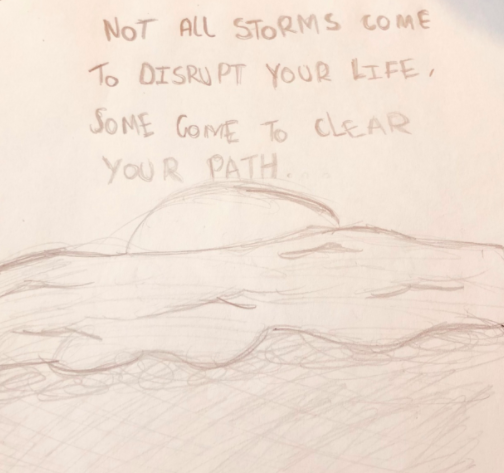 NOT ALL STORMS COME
TO DISRUPT YOUR LIFE,
SOME COME TO CLEAR
YOUR PATH.